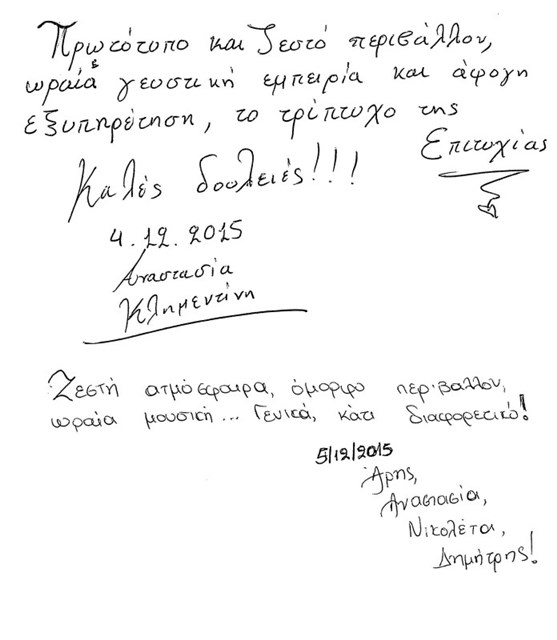 Πρωτότυπο και ζεστό περιβάλλον,
ωραία γευστική εμπειρία και άψογη
εξυπηρέτηση, το τρίπτυχο της
Επιτυχίας
Καλές δουλειές!!!
4.12.2015
Αναστασία
Κλημεντίνη
Ζεστή ατμόσφαιρα, όμορφο περιβαλλον,
ωραία μουσική... Γενικά, κάτι διαφορετικό!
5/12/2015
Άρης,
Αναστασία,
Νικολέτα,
Δημήτρης!